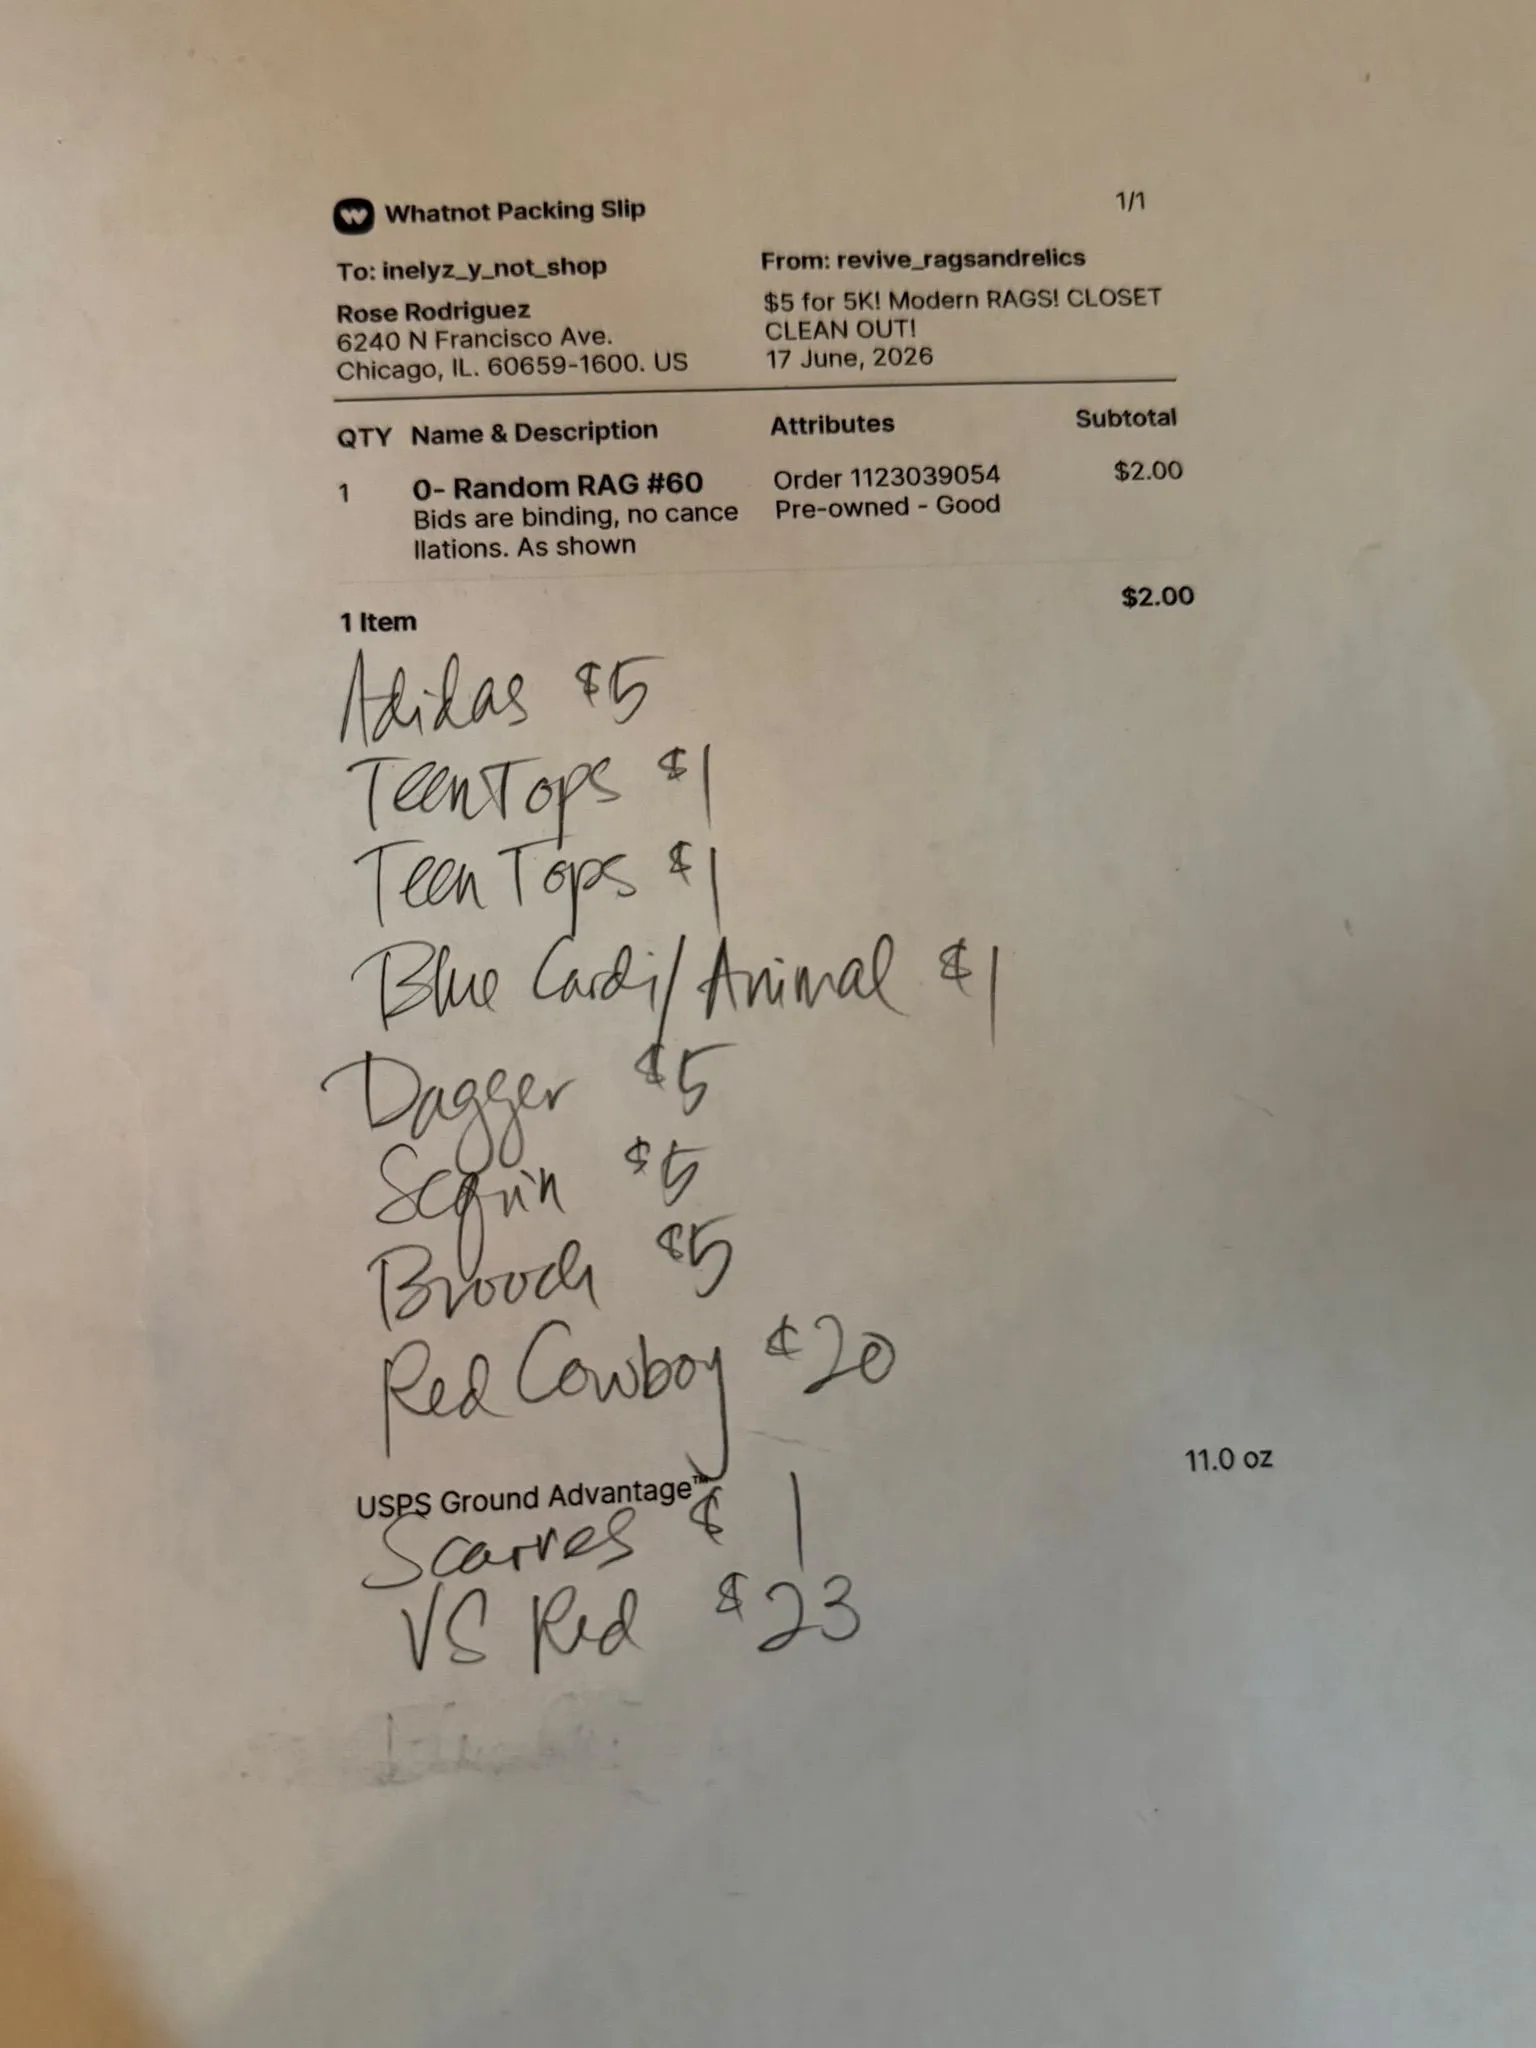 Whatnot Packing Slip
1/1
To: inelyz_y_not_shop
Rose Rodriguez
6240 N Francisco Ave.
Chicago, IL. 60659-1600. US
From: revive_ragsandrelics
$5 for 5K! Modern RAGS! CLOSET
CLEAN OUT!
17 June, 2026
QTY Name & Description Attributes Subtotal
1 0- Random RAG #60 Order 1123039054 $2.00
Bids are binding, no cance Pre-owned - Good
llations. As shown
1 Item $2.00
Adidas $5
Teen Tops $1
Teen Tops $1
Blue Cardi/Animal $1
Dagger $5
Sequin $5
Brooch $5
Red Cowboy $20
USPS Ground Advantage™ 11.0 oz
Scarves $1
VS Red $23